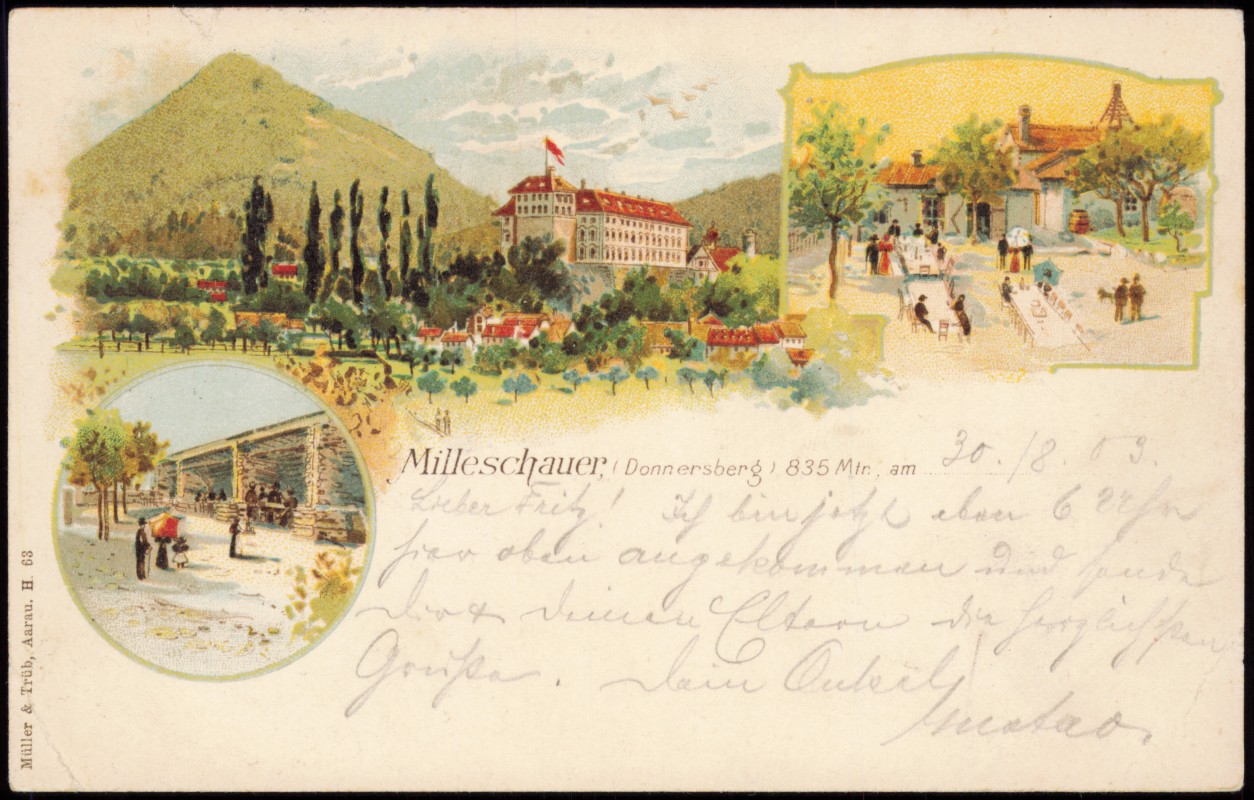 Milleschauer, (Donnersberg) 835 Mtr., am 30./8. 03.
Lieber Fritz! Ich bin jetzt eben 6 Uhr
hier oben angekommen und sende
Dir & Deinen Eltern die herzlichsten
Grüße. Dein Onkel
Gustav.
Müller & Trüb, Aarau. H. 63